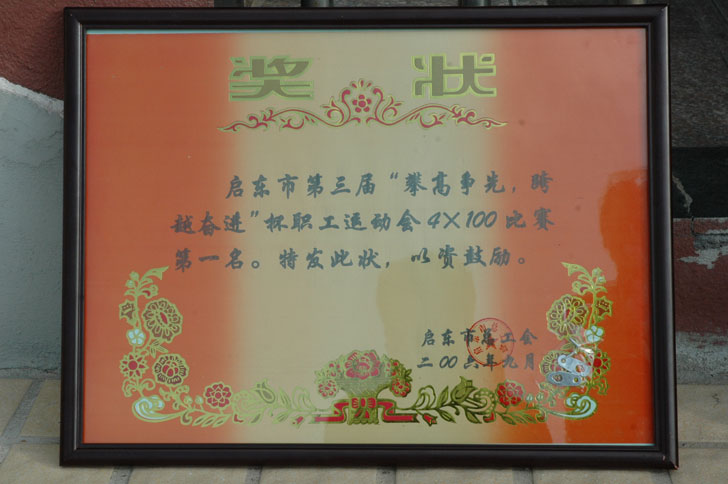 奖状
启东市第三届“攀高争先，跨
越奋进”杯职工运动会4×100比赛
第一名。特发此状，以资鼓励。
启东市总工会
二00六年九月